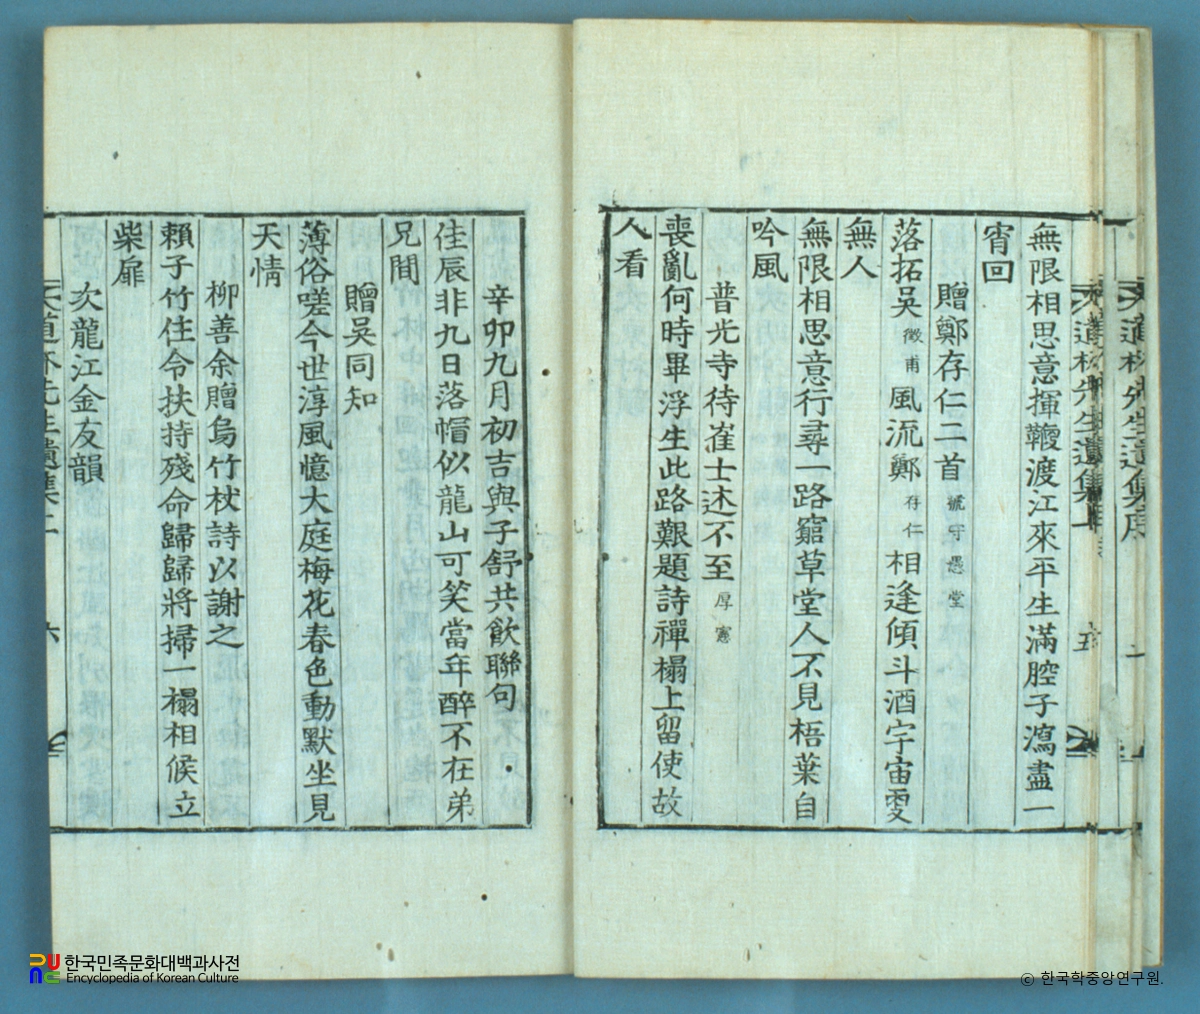 無限相思意揮鞭渡江來平生滿腔子瀉盡一
宵回
贈鄭存仁二首 號守愚堂
落拓吳徵甫風流鄭存仁相逢傾斗酒宇宙更
無人
無限相思意行尋一路窮草堂人不見梧葉自
吟風
普光寺待崔士述不至 厚憲
喪亂何時畢浮生此路艱題詩禪榻上留使故
人看
辛卯九月初吉與子舒共飮聯句
佳辰非九日落帽似龍山可笑當年醉不在弟
兄間
贈吳同知
薄俗嗟今世淳風憶大庭梅花春色動默坐見
天情
柳善余贈烏竹杖詩以謝之
賴子竹住令扶持殘命歸歸將掃一榻相候立
柴扉
次龍江金友韻
한국민족문화대백과사전
Encyclopedia of Korean Culture
ⓒ 한국학중앙연구원.